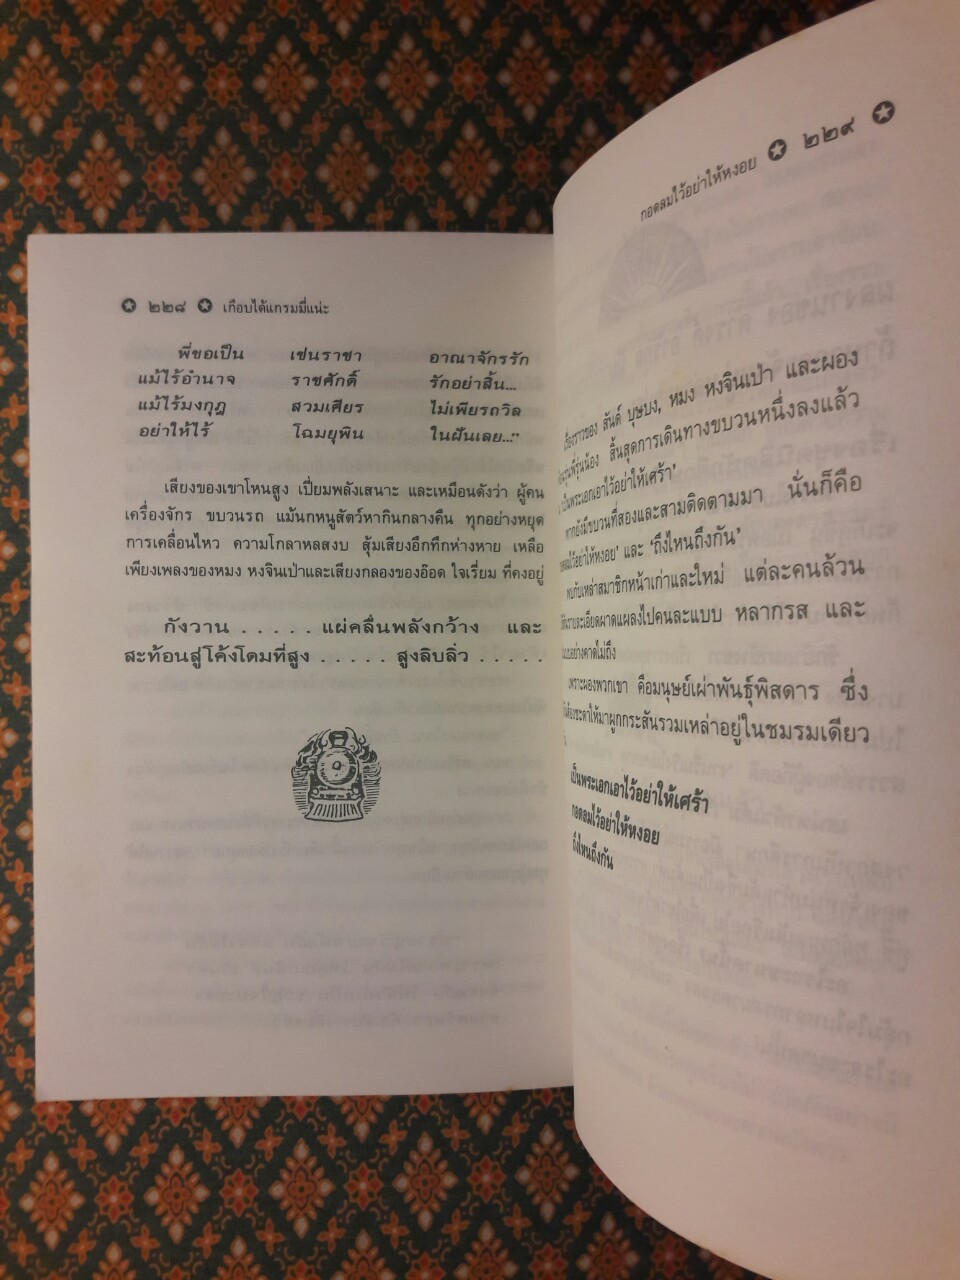 ๒๒๘ เกือบได้แกรมมี่แน่ะ
พี่ขอเป็น เช่นราชา อาณาจักรรัก
แม้ไร้อำนาจ ราชศักดิ์ รักอย่าสิ้น...
แม้ไร้มงกุฎ สวมเศียร ไม่เพียรถวิล
อย่าให้ไร้ โฉมยุพิน ในฝันเลย..."
เสียงของเขาโหนสูง เปี่ยมพลังเสนาะ และเหมือนดังว่า ผู้คน
เครื่องจักร ขบวนรถ แม้นกหนูสัตว์หากินกลางคืน ทุกอย่างหยุด
การเคลื่อนไหว ความโกลาหลสงบ สุ้มเสียงอึกทึกห่างหาย เหลือ
เพียงเพลงของหมง หงจินเป่าและเสียงกลองของอ๊อด ใจเรี่ยม ที่คงอยู่
กังวาน . . . . . แผ่คลื่นพลังกว้าง และ
สะท้อนสู่โค้งโดมที่สูง . . . . . สูงลิบลิ่ว . . . . .
กอดลมไว้อย่าให้หงอย ๒๒๙
เรื่องราวของ สันต์ บุษบง, หมง หงจินเป่า และผอง
พี่รุ่นน้อง สิ้นสุดการเดินทางขบวนหนึ่งลงแล้ว
เป็นพระเอกเอาไว้อย่าให้เศร้า'
หากยังมีขบวนที่สองและสามติดตามมา นั่นก็คือ
กอดลมไว้อย่าให้หงอย' และ 'ถึงไหนถึงกัน'
พบกับเหล่าสมาชิกหน้าเก่าและใหม่ แต่ละคนล้วน
รายละเอียดผาดแผลงไปคนละแบบ หลากรส และ
อย่างคาดไม่ถึง
เพราะผองพวกเขา คือมนุษย์เผ่าพันธุ์พิสดาร ซึ่ง
ชะตาให้มาผูกกระสันรวมเหล่าอยู่ในชมรมเดียว
เป็นพระเอกเอาไว้อย่าให้เศร้า
กอดลมไว้อย่าให้หงอย
ถึงไหนถึงกัน